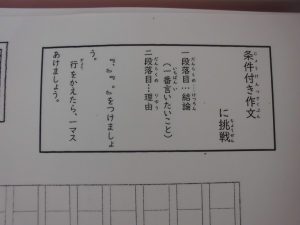 条件付き作文
に挑戦
一段落目…結論
(一番言いたいこと)
二段落目…理由
「、」「。」をつけましょ
う。
行をかえたら、一マス
あけましょう。